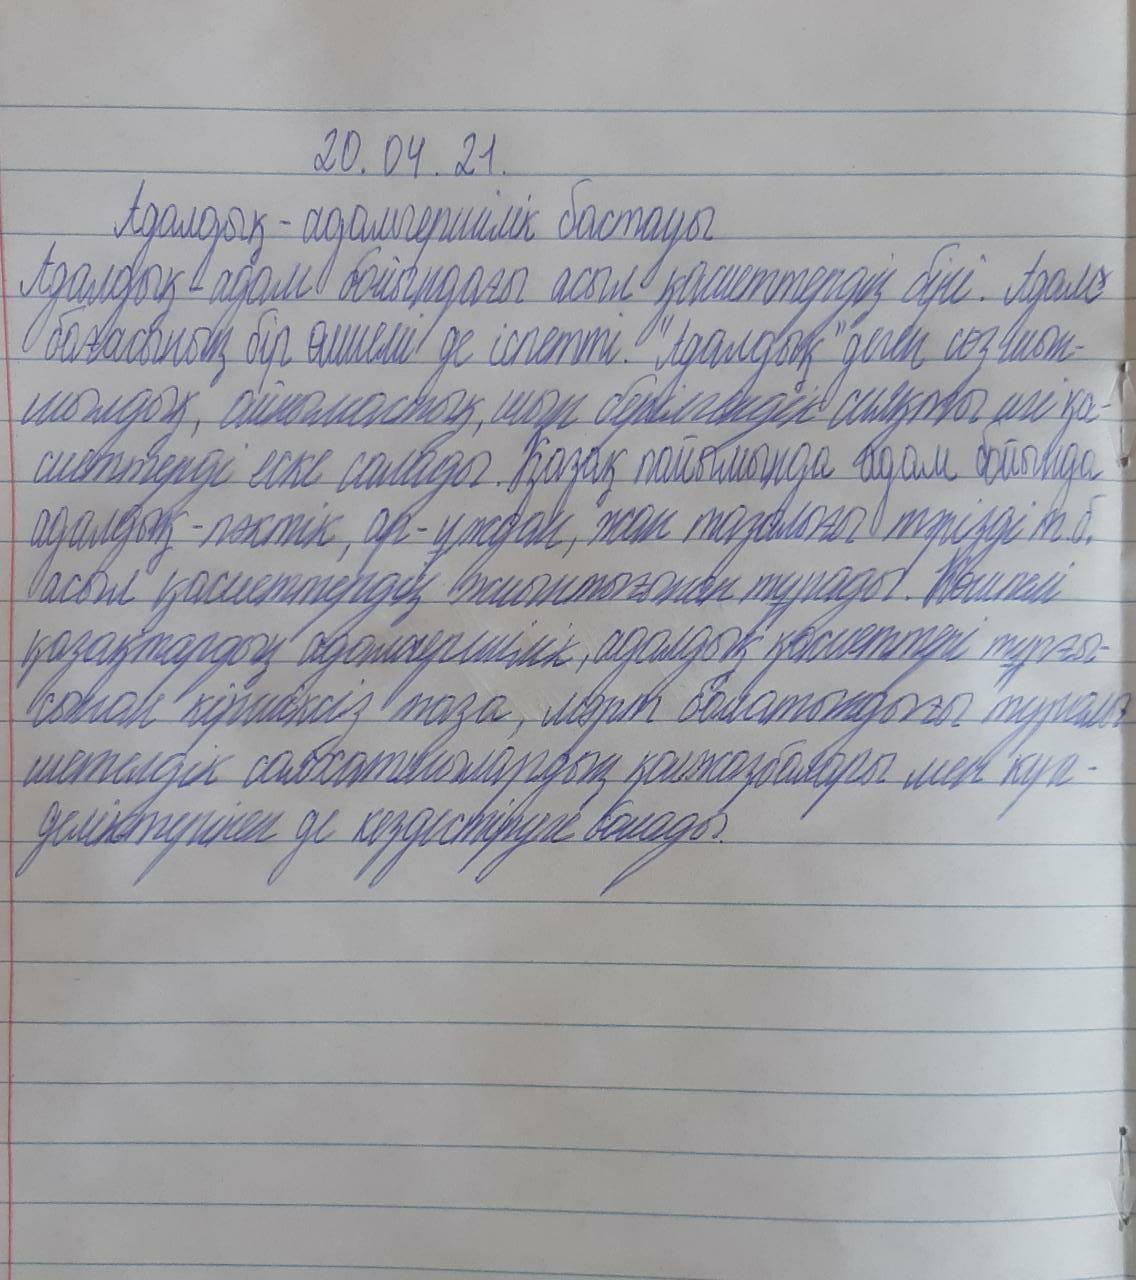 20.04.21.
Адалдық - адамгершілік бастауы
Адалдық - адам бойындағы асыл қасиеттердің бірі. Адам
бағасының бір өлшемі де іспетті. "Адалдық" деген сөз шын-
шылдық, айнымастық, шын берілгендік сияқты игі қа-
сиеттерді еске салады. Қазақ пайымында адам бойында
адалдық - пәктік, ар-ұждан, жан тазалығы тәрізді т.б.
асыл қасиеттердің жиынтығынан тұрады. Көшпелі
қазақтардың адамгершілік, адалдық қасиеттері тұрғы-
сынан кіршіксіз таза, мәрт болатындығы туралы
шетелдік саяхатшылардың қолжазбалары мен күн-
деліктерінен де кездестіруге болады.